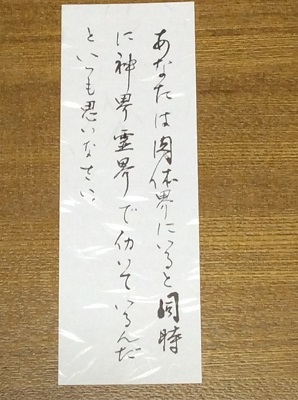 あなたは肉体界にいると同時
に神界霊界で働いているんだ
といつも思いなさい